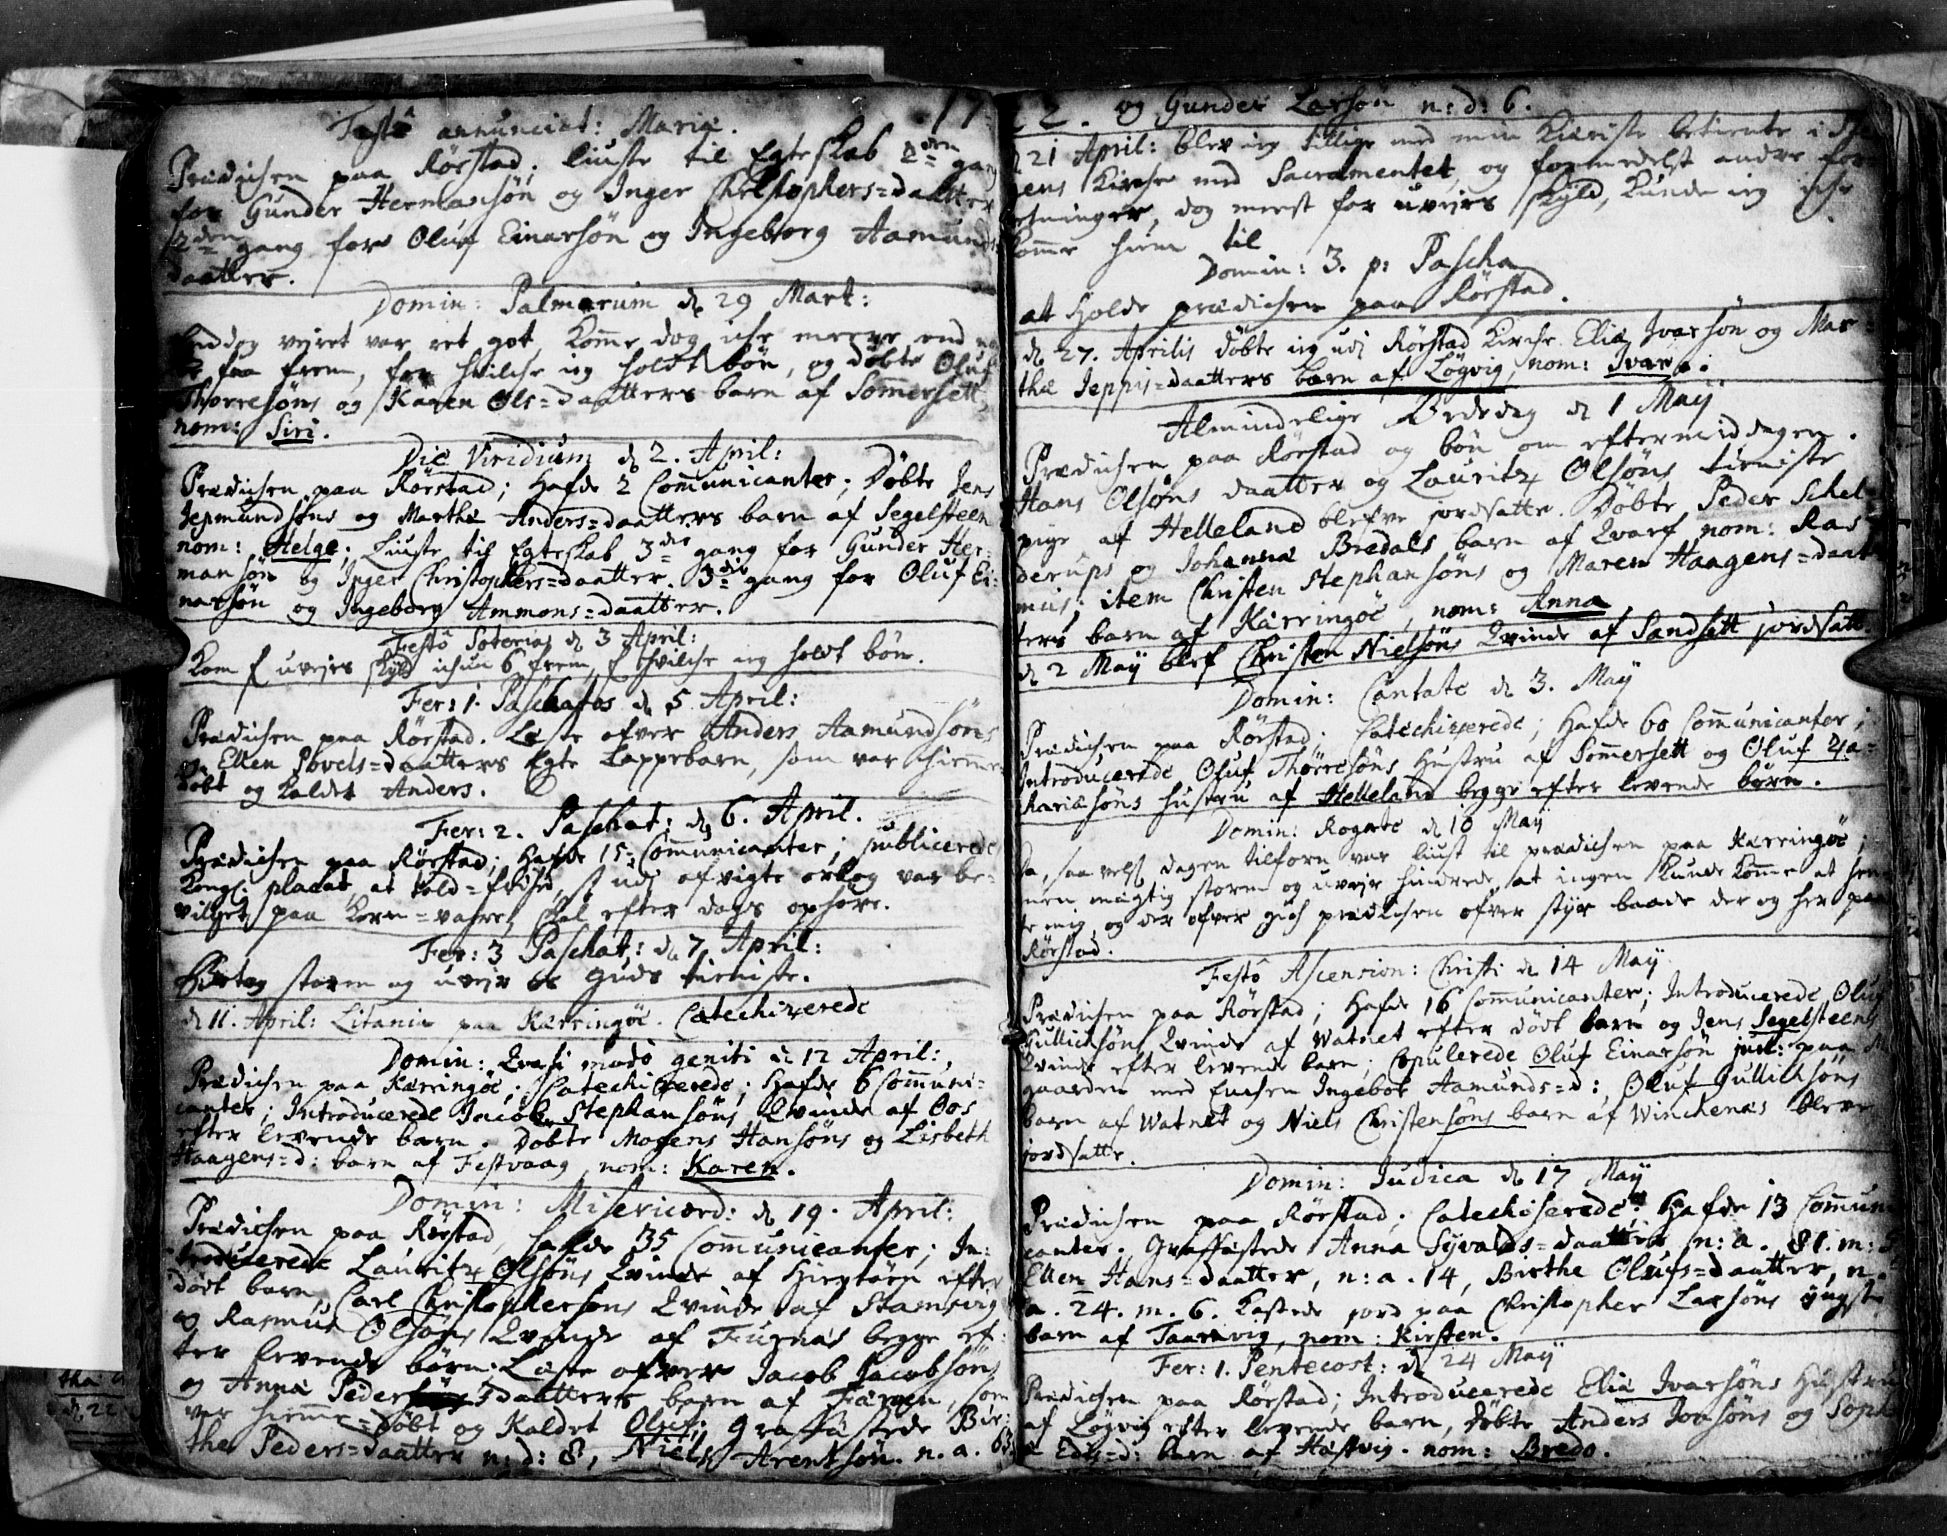 17
Festô annunciat: Mariæ.
Prædichen paa Rörstad; liuste til Egteskab 2den gang
for Gunder Hermansön og Inger Christophers=daatter
2den gang for Oluf Einarsön og Ingeborg Aamunds
daatter.
Domin: Palmarum d. 29 Mart:
Endog vejret var ret got, komme dog iche meere end
faa frem, for hvilche ieg holdt bön, og döbte Oluf
Thorresöns og Karen Ols=daatters barn af Sommersett,
nom: Siri.
Die Viridium d. 2. April:
Prædichen paa Rörstad; Hafde 2 Communicanter; Döbte Jens
Jepmundsöns og Marthe Anders=daatters barn af Segelsteen
nom: Helge; Liuste til Egteskab 3die gang for Gunder Her=
mansön og Inger Christophers=daatter. 3die gang for Oluf Ei=
narsön og Ingeborg Ammons=daatter.
Festô Soterias d. 3 April:
Kom f uvejrs skyld ichun 6 frem, f hvilche ieg holdt bön.
Fer: 1. Paschatos d. 5 April:
Prædichen paa Rörstad. Læste ofver Anders Aamundsöns
og Ellen Povels=daatters Egte Lappebarn, som var hiemme
döbt og kaldet Anders.
Fer: 2. Paschat: d. 6. April.
Prædichen paa Rörstad; Hafde 15 Communicanter; publicerede
Kongl: placat, at told=frihed, udj afvigte orlog var be=
vilget paa Korn=vahre, skal efter dags ophöre.
Fer: 3 Paschat: d. 7. April:
storm og uvejr os Guds tieniste.
d. 11. April: Litanie paa Kærringöe. Catechizerede
Domin: Qvasi modo geniti d. 12 April:
Prædichen paa Kærringöe; Catechizerede; Hafde 6 Communi=
canter; Introducerede Jacob Stephansöns Qvinde af Oos
efter levende barn. Döbte Mogens Hansöns og Lisbeth
Haagens=d: barn af Festvaag, nom: Karen.
Domin: Misericord: d. 19. April:
Prædichen paa Rörstad, hafde 35 Communicanter; In=
troducerede Lauritz Olsöns Qvinde af efter
dödt barn, Carl Christophersöns Qvinde af Stamsvig
og Rasmus Olsöns Qvinde af Fugnæs begge ef=
ter levende börn; Læste ofver Jacob Jacobsöns
og Anna Peders daatters barn af Færøen, som
var hiemme=döbt og Kaldet Oluf; Graffästede Bir=
the Peders=daatter n: d: 8, Niels Arentsön n. a. 63
22. og Gunder Larsön n: d: 6.
d 21 April: blev ieg tillige med min Kiæriste betiente i
Kirche med Sacramentet, og formedelst andre for=
retninger, dog meest for uvejrs skyld, kunde ieg iche
komme hiem til
Domin: 3. p: Pascha
at Holde prædichen paa Rörstad.
d. 27. Aprilis döbte ieg udj Rörstad Kirche Eliæ Ivarsön og Mar=
thæ Jeppis=daatters barn af Lögvig nom: Ivar.
Almindelige Bededag d. 1 Maÿ
Prædichen paa Rörstad og bön om eftermiddagen.
Hans Olsöns daatter og Lauritz Olsöns tieniste
pige af Helleland blefve jordsatte. Döbte Peder Schel=
derups og Johanna Bredals barn af Qvarf nom: Ras=
mus; item Christen Stephansöns og Maren Haagens=daat=
ters barn af Kærringöe, nom: Anna
d. 2 Maÿ blef Christen Nielsöns Qvinde af Sandsett jordsatt.
Domin: Cantate d. 3. Maÿ
Prædichen paa Rörstad. Catechizerede; Hafde 60 Communicanter;
Introducerede Oluf Thörresöns Hustru af Sommersett og Oluf Za=
kariæsöns hustru af Helleland begge efter levende börn.
Domin: Rogate d. 10 Maÿ
Da, saa vel dagen tilforn var liust til prædichen paa Kærringöe;
men mægtig storm og uvejr hindrede, at ingen kunde komme at hen
te mig, og der ofver gich prædichen ofver styr baade der og her paa
Rörstad.
Festô Ascension: Christi d. 14 Maÿ
Prædichen paa Rörstad; Hafde 16 Communicanter; Introducerede Oluf
Gullichsöns Qvinde af Watnet efter dödt barn og Jens Segelsteens
Qvinde efter levende barn; Copulerede Oluf Einarsön jun: paa
gaarden med Enchen Ingebor Aamunds=d:; Oluf Gullichsöns
barn af Watnet og Niels Christensöns barn af Winchenæs bleve
jordsatte.
Domin: Judica d. 17 Maÿ
Prædichen paa Rörstad; Catechiserede; Hafde 13 Communi
canter. Graffästede Anna Syvalds=daatter n: a. 81. m:
Ellen Hans=daatter, n: a. 14, Birthe Olufs=daatter, n.
a. 24. m. 6. Kastede jord paa Christopher Larsöns yngste
barn af Taarnvig, nom: Kirsten.
Fer: 1. Pentecost: d. 24 Maÿ
Prædichen paa Rörstad; Introducerede Eliæ Ivarsöns Hustru
af Lögvig efter levende barn, döbte Anders Jonsöns og Sophi
Edis=d: barn af Hästvig. nom: Bredo.